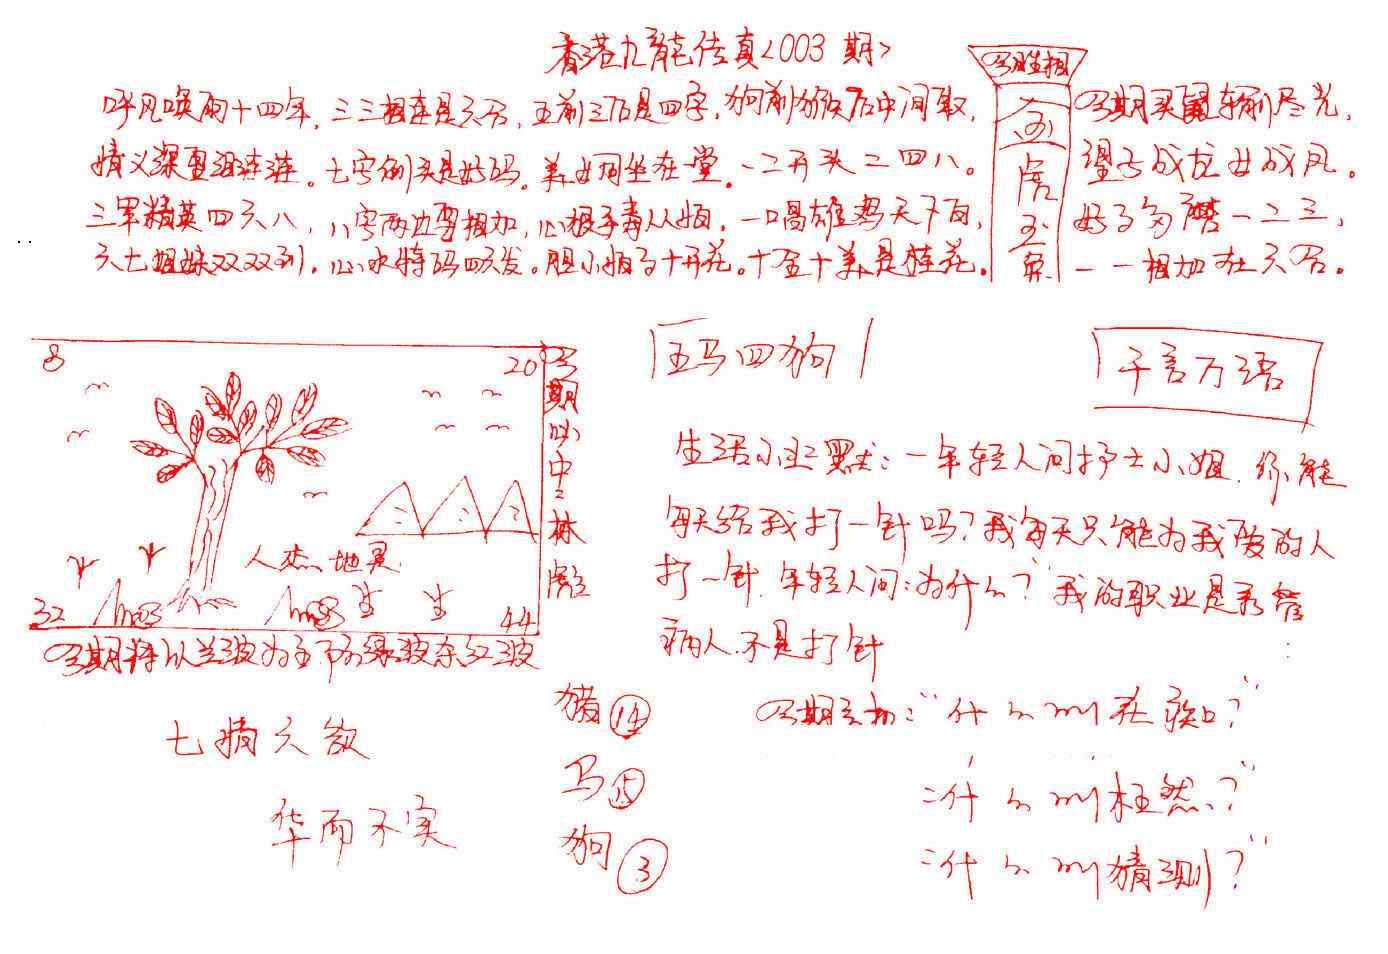 香港九龍传真<003期>
今期生相
金
虎
玉
兔
呼风唤雨十四年,三三相连是六合,五前三后是四字,狗前猴后中间取,
情义深重泪连连。七字倒头是好码。美女同坐在堂。一二开头二四八。
三军精英四六八,八字两边要相加,心狠手毒从如,一唱雄鸡天下白,
六七姐妹双双到。心水特码四六发。胆小如了十开花。十全十美是桂花。
今期买鼠输尽光,
望子成龙女成凤。
好了多 一二三,
一一相加在六合。
8
20
人杰地灵
32
44
今期必中林彪
今期特以兰波为主下为绿波余红波
七情六欲
华而不实
五马四狗
千言万语
生活小幽默:一年轻人问护士小姐.你能
每天给我打一针吗?我每天只能为我爱的人
打一针.年轻人问:为什么?我的职业是看管
病人.不是打针
猪⑭
马⑮
狗③
今期玄机:"什么叫在?"
:什么叫枉然?"
:什么叫猜测?"